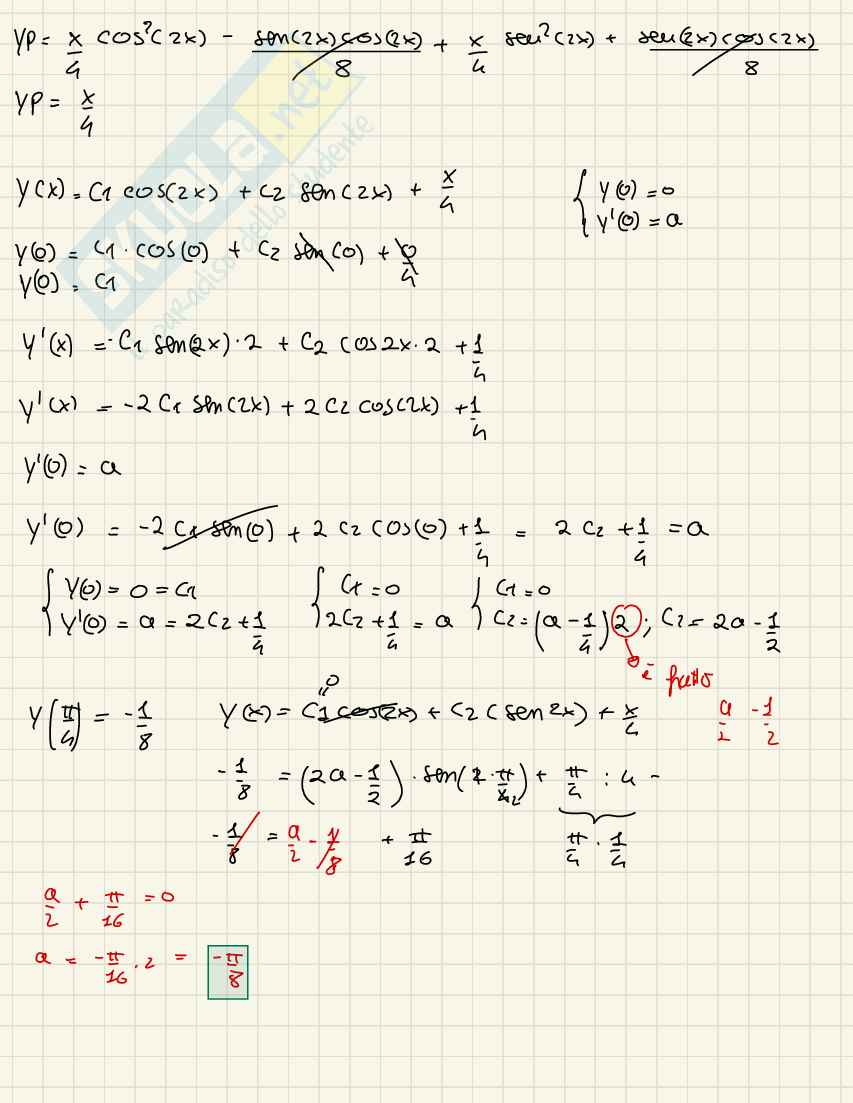 YP = x/4 cos²(2x) - sen(2x)cos(2x)/8 + x/4 sen²(2x) + sen(2x)cos(2x)/8
YP = x/4
y(x) = C1 cos(2x) + C2 sen(2x) + x/4 { y(0) = 0
y'(0) = a
y(0) = C1 · cos(0) + C2 sen(0) + 0/4
y(0) = C1
y'(x) = -C1 sen(2x)·2 + C2 cos2x·2 + 1/4
y'(x) = -2C1 sen(2x) + 2C2 cos(2x) + 1/4
y'(0) = a
y'(0) = -2 C1 sen(0) + 2 C2 cos(0) + 1/4 = 2 C2 + 1/4 = a
{ y(0) = 0 = C1 { C1 = 0 { C1 = 0
y'(0) = a = 2C2 + 1/4 2C2 + 1/4 = a C2 = (a - 1/4) 2 ; C2 = 2a - 1/2
è fratto
a/2 - 1/2
0
y(π/4) = -1/8 y(x) = C1 cos(2x) + C2 (sen2x) + x/4
-1/8 = (2a - 1/2) · sen(2·π/42) + π/4 : 4 -
-1/8 = a/2 - 1/8 + π/16 π/4 · 1/4
a/2 + π/16 = 0
a = -π/16 · 2 = -π/8
SKUOLA.net
il paradiso dello studente